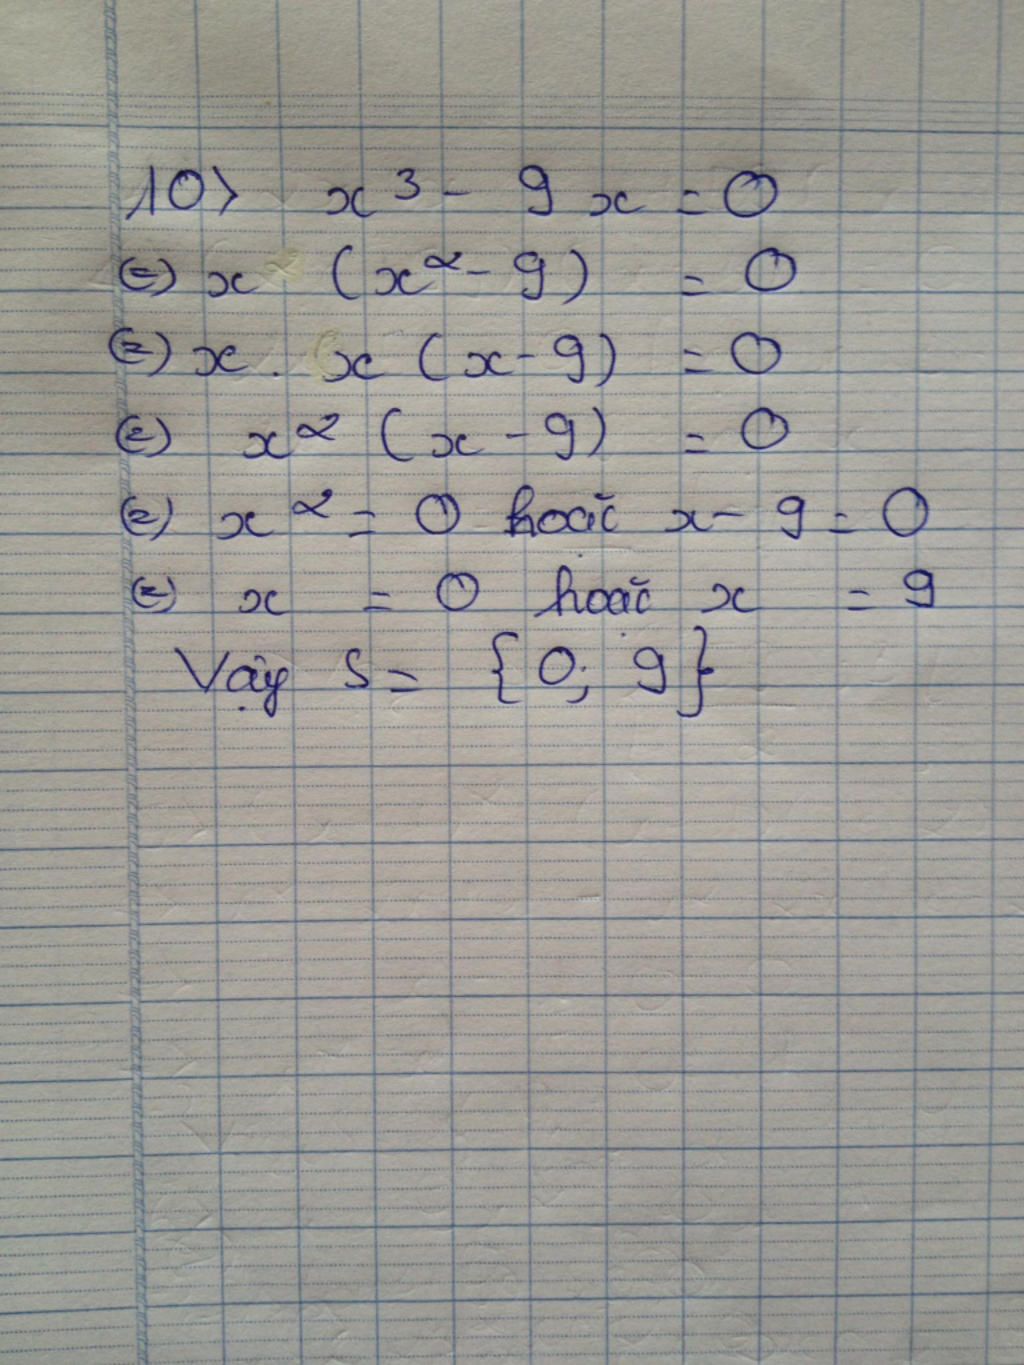 10> x³ - 9x = 0
(=) x (x² - 9) = 0
(=) x . x (x - 9) = 0
(=) x² (x - 9) = 0
(=) x² = 0 hoặc x - 9 = 0
(=) x = 0 hoặc x = 9
Vậy S = {0; 9}